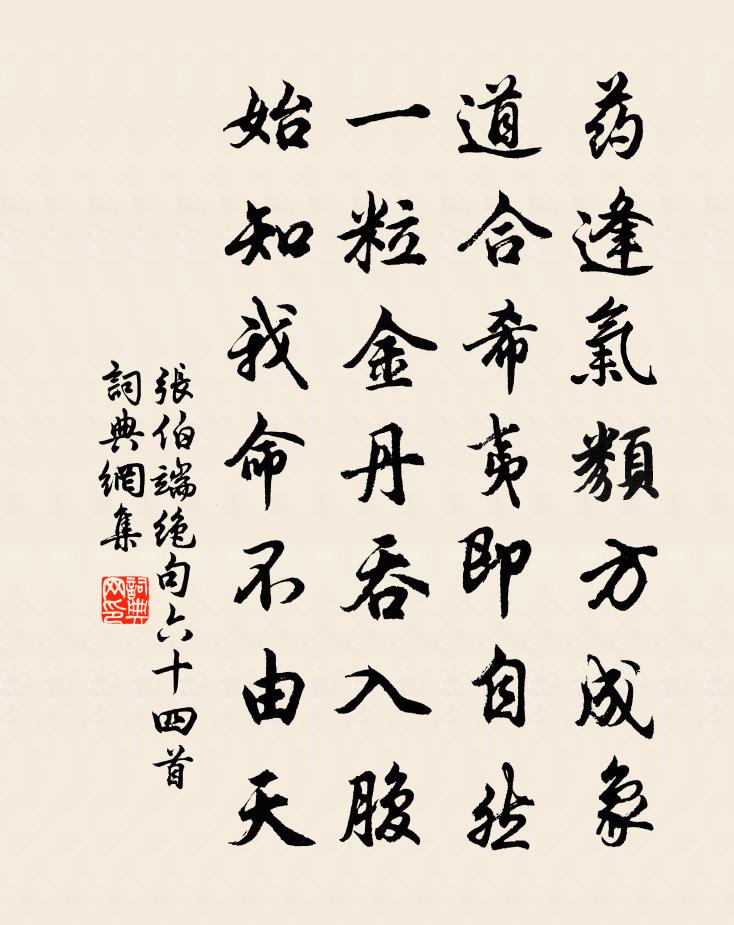 药逢氣類方成象
道合希夷即自然
一粒金丹吞入腹
始知我命不由天
張伯端絶句六十四首
詞典網集
詞典网印